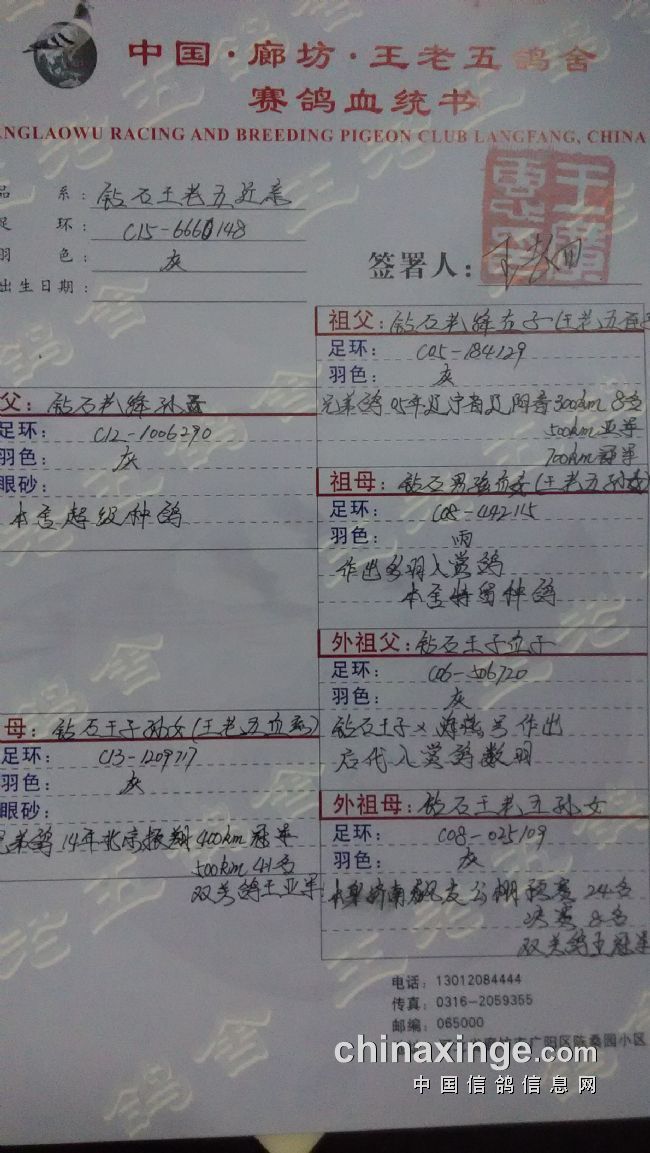 中国·廊坊·王老五鸽舍
赛鸽血统书
ANGLAOWU RACING AND BREEDING PIGEON CLUB LANGFANG, CHINA
品 系：钻石王老五近亲
足 环：C15-6660148
羽 色：灰
出生日期：
签署人：
祖父：钻石
足环：C05-184129
羽色：灰
兄弟鸽05年辽宁省辽阳音300km 8名
500km亚军
700km冠军
父：钻石
足环：C12-1006290
羽色：灰
眼砂：
本舍超级种鸽
祖母：钻石男孩直女(王老五孙女)
足环：C08-442115
羽色：雨
作出多羽入赏鸽
本舍特留种鸽
外祖父：钻石王子直子
足环：C06-506720
羽色：灰
钻石王子×号作出
后代入赏鸽数羽
母：钻石王子孙女(王老五血系)
足环：C13-1209717
羽色：灰
眼砂：
兄弟鸽14年北京振翔400km冠军
500km 41名
双关鸽王亚军
外祖母：钻石王老五孙女
足环：C08-025109
羽色：灰
济南友公棚预赛24名
决赛8名
双关鸽王冠军
电话：13012084444
传真：0316-2059355
邮编：065000
广阳区陈桑园小区
chinaxinge.com
中国信鸽信息网